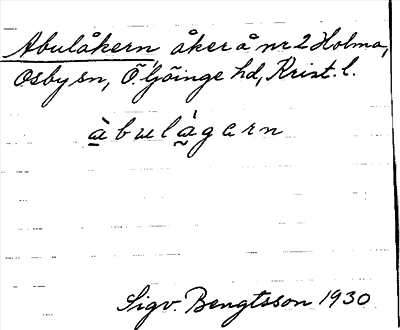 Abulåkern åker å nr 2 Holma,
Osby sn, Ö. Göinge hd, Krist. l.
àbulågarn
Sigv. Bengtsson 1930